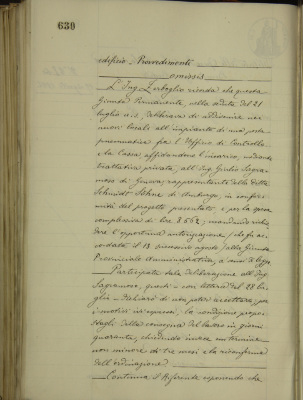 630
edificio - Provvedimenti
omissis
L'Ing. Zerboglio ricorda che questa
Giunta Permanente, nella seduta del 21
luglio u.s., deliberava di addivenire nei
nuovi locali all'impianto di una posta
pneumatica fra l'Ufficio di Controllo
e la Cassa affidandone l'incarico, mediante
trattativa privata, all'Ing. Giulio Sagra-
moso di Genova, rappresentante della Ditta
Schmidt Söhne di Amburgo, in confor-
mità del progetto presentato e per la spesa
complessiva di Lire 8662; mandando richie-
dere l'opportuna autorizzazione, che fu ac-
cordata il 13 successivo agosto, dalla Giunta
Provinciale Amministrativa, a sensi di legge.
Partecipata tale deliberazione all'Ing.
Sagramoso, questi con lettera del 28 lu-
glio dichiarò di non poter accettare, per
i motivi ivi espressi, la condizione propo-
stagli della consegna del lavoro in giorni
quaranta, chiedendo invece un termine
non minore di tre mesi e la riconferma
dell'ordinazione.
Continua il Riferente esponendo che